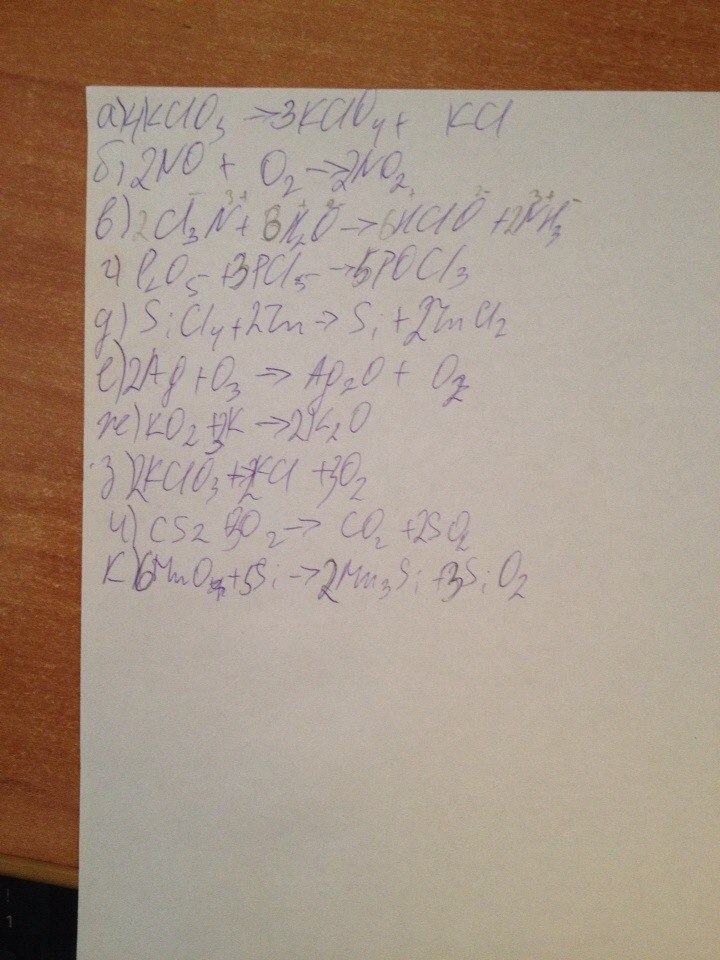 а) 4KClO3 → 3KClO4 + KCl
б) 2NO + O2 → 2NO2
в) 2Cl3N + 3H2O → 6HClO + 2NH3
г) P2O5 + 3PCl5 → 5POCl3
д) SiCl4 + 2Zn → Si + 2ZnCl2
е) 2Ag + O3 → Ag2O + O2
ж) KO2 + 3K → 2K2O
з) 2KClO3 → 2KCl + 3O2
и) CS2 + 3O2 → CO2 + 2SO2
к) 6MnO + 5Si → 2Mn3Si + 3SiO2